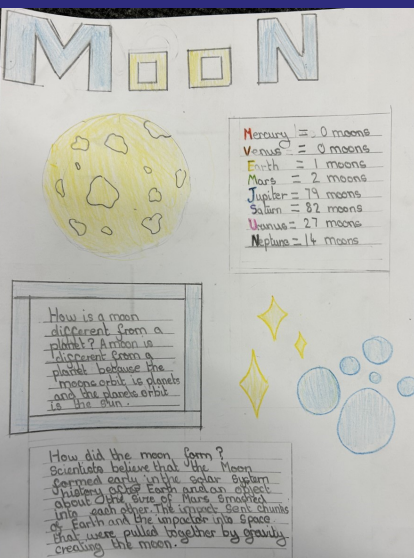 MOON
Mercury = 0 moons
Venus = 0 moons
Earth = 1 moons
Mars = 2 moons
Jupiter = 79 moons
Saturn = 82 moons
Uranus = 27 moons
Neptune = 14 moons
How is a moon
different from a
planet? A moon is
different from a
planet because the
moons orbit is planets
and the planets orbit
is the sun.
How did the moon form?
Scientists believe that the Moon
formed early in the solar System
history after Earth and an object
about the size of Mars smashed
into each other. The impact sent chunks
of Earth and the impactor into space
that were pulled together by gravity
creating the moon.